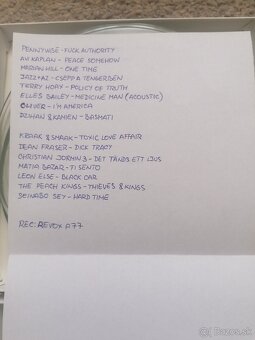 PENNYWISE - FUCK AUTHORITY
AVI KAPLAN - PEACE SOMEHOW
MARIAN HILL - ONE TIME
JAZZ+AZ - CSEPP A TENGERBEN
TERRY HOAX - POLICY OF TRUTH
ELLES BAILEY - MEDICINE MAN (ACOUSTIC)
OLIVER - I'M AMERICA
DZIHAN & KAMIEN - BASMATI
KRAAK & SMAAK - TOXIC LOVE AFFAIR
DEAN FRASER - DICK TRACY
CHRISTIAN JORMIN 3 - DET TÄNDS ETT LJUS
MATIA BAZAR - TI SENTO
LEON ELSE - BLACK CAR
THE PEACH KINGS - THIEVES & KINGS
SEINABO SEY - HARD TIME
REC: REVOX A77
© Bazos.sk